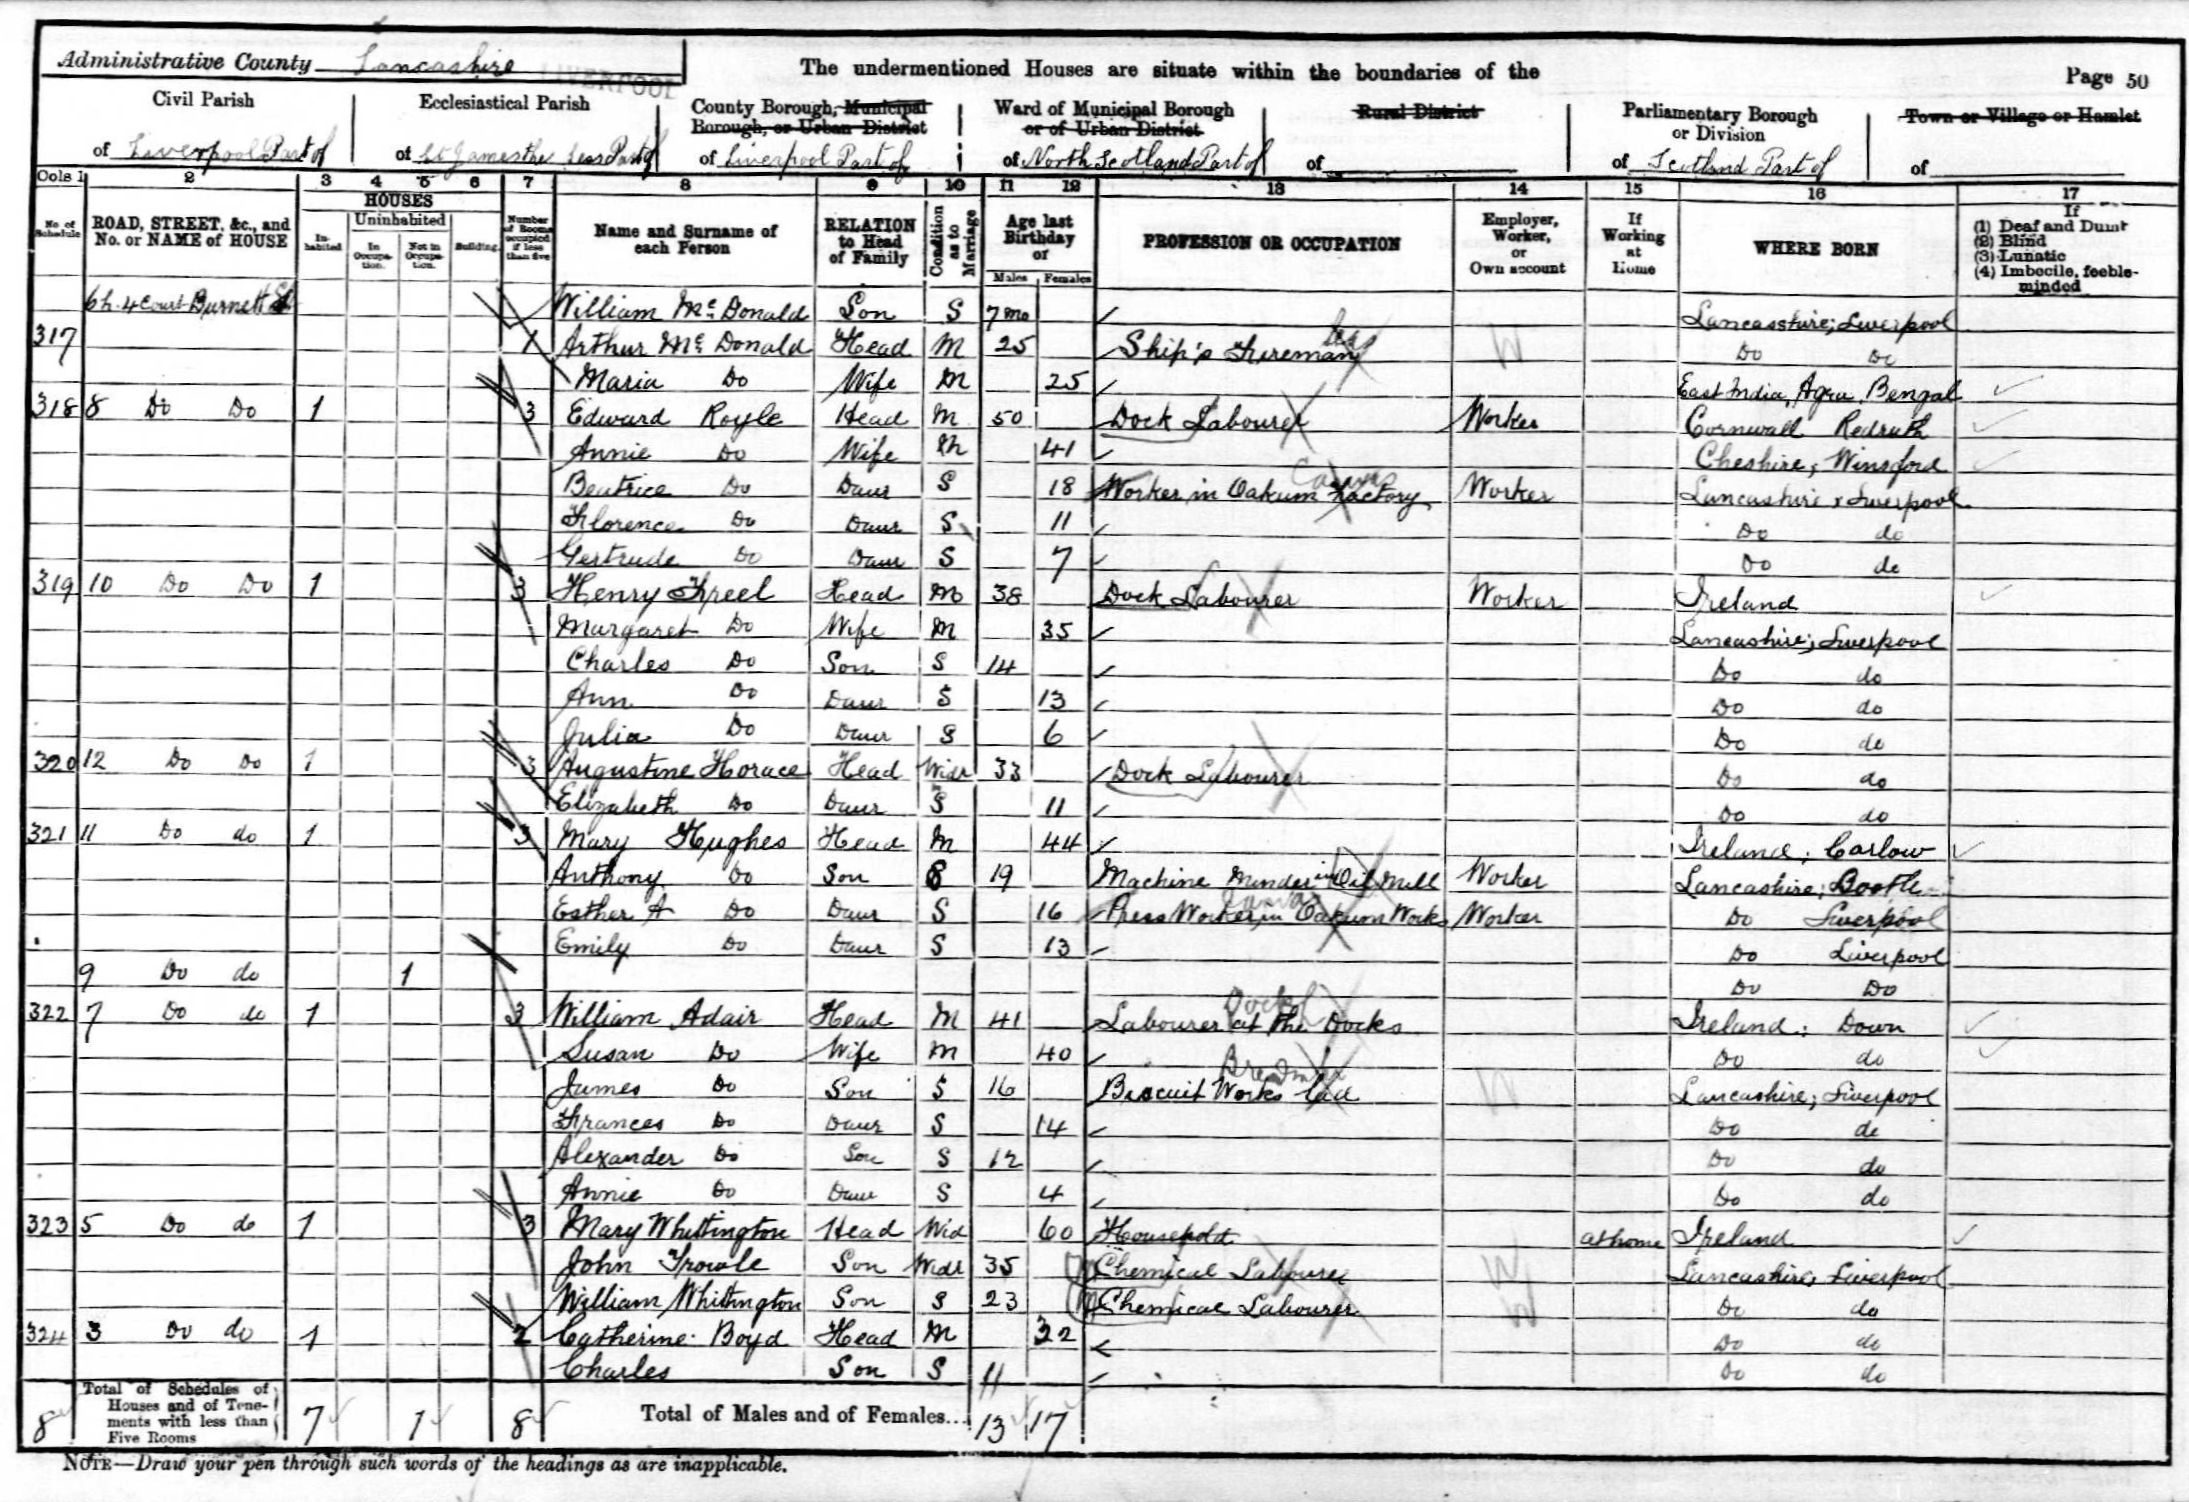 Administrative County Lancashire LIVERPOOL
The undermentioned Houses are situate within the boundaries of the
Page 50
Civil Parish of Liverpool Part of
Ecclesiastical Parish of St James the Less Part of
County Borough, Municipal Borough, or Urban District of Liverpool Part of
Ward of Municipal Borough or of Urban District of North Scotland Part of
Rural District of
Parliamentary Borough or Division of Scotland Part of
Town or Village or Hamlet of
Cols 1 2 3 4 5 6 7 8 9 10 11 12 13 14 15 16 17
No. of Schedule
ROAD, STREET, &c., and No. or NAME of HOUSE
HOUSES
Inhabited
Uninhabited
In Occupation.
Not in Occupation.
Building.
Number of Rooms occupied if less than five
Name and Surname of each Person
RELATION to Head of Family
Condition as to Marriage
Age last Birthday of
Males Females
PROFESSION OR OCCUPATION
Employer, Worker, or Own account
If Working at Home
WHERE BORN
If
(1) Deaf and Dumb
(2) Blind
(3) Lunatic
(4) Imbecile, feeble-minded
6h. 4 Court Burnett St William Mc Donald Son S 7 mo Lancashire; Liverpool
317 1 Arthur Mc Donald Head M 25 Ship's Fireman Do Do
Maria Do Wife M 25 East India, Agra, Bengal
318 8 Do Do 1 3 Edward Royle Head M 50 Dock Labourer Worker Cornwall Redruth
Annie Do Wife M 41 Cheshire; Winsford
Beatrice Do Daur S 18 Worker in Oakum Factory Canvas Worker Lancashire; Liverpool
Florence Do Daur S 11 Do do
Gertrude Do Daur S 7 Do do
319 10 Do Do 1 3 Henry Freel Head M 38 Dock Labourer Worker Ireland
Margaret Do Wife M 35 Lancashire; Liverpool
Charles Do Son S 14 Do do
Ann Do Daur S 13 Do do
Julia Do Daur S 6 Do do
320 12 Do Do 1 3 Augustine Horace Head Widr 33 Dock Labourer Do do
Elizabeth Do Daur S 11 Do do
321 11 Do do 1 3 Mary Hughes Head M 44 Ireland; Carlow
Anthony Do Son S 19 Machine Minder in Oil Mill Worker Lancashire; Bootle
Esther A Do Daur S 16 Press Worker in Oakum Works Canvas Worker Do Liverpool
Emily Do Daur S 13 Do Liverpool
9 Do do 1 Do Do
322 7 Do do 1 3 William Adair Head M 41 Labourer at the Docks Dock Ireland; Down
Susan Do Wife M 40 Do do
James Do Son S 16 Biscuit Works lad W Lancashire; Liverpool
Frances Do Daur S 14 Do do
Alexander Do Son S 12 Do do
Annie Do Daur S 4 Do do
323 5 Do do 1 3 Mary Whittington Head Wid 60 at home Ireland
John Son Widr 35 Chemical Labourer W Lancashire; Liverpool
William Whittington Son S 23 Chemical Labourer W Do do
324 3 Do do 1 2 Catherine Boyd Head M 32 Do do
Charles Son S 11 Do do
8 Total of Schedules of Houses and of Tenements with less than Five Rooms 7 1 8 Total of Males and of Females... 13 17
NOTE—Draw your pen through such words of the headings as are inapplicable.